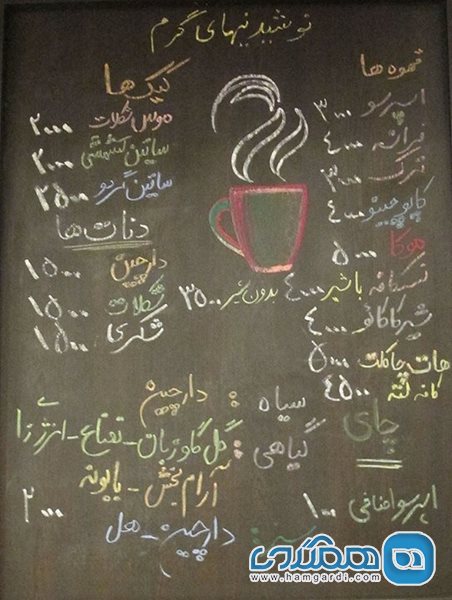 نوشیدنیهای گرم
قهوه ها
اسپرسو ۳۰۰۰
فرانسه ۴۰۰۰
ترک ۳۰۰۰
کاپوچینو ۴۰۰۰
موکا ۵۰۰۰
نسکافه باشیر ۴۰۰۰ بدون شیر ۳۵۰۰
شیرکاکائو ۴۰۰۰
هات چاکلت ۵۰۰۰
کافه گلاسه ۴۵۰۰
کیک ها
موس شکلات ۲۰۰۰
ساتین کشمشی ۲۰۰۰
ساتین گردو ۲۵۰۰
دنات ها
دارچین ۱۵۰۰
شکلات ۱۵۰۰
شکری ۱۵۰۰
چای
سیاه : دارچین
گیاهی : گل گاوزبان - نعناع - انرژی زا
آرام بخش - بابونه
۲۰۰۰
سبز : دارچین - هل
اسپرسو اضافی ۱۰۰۰
همگردی
www.hamgardi.com